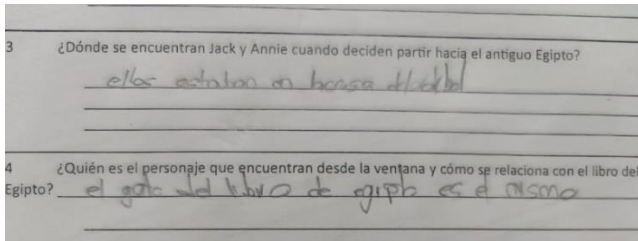 3 ¿Dónde se encuentran Jack y Annie cuando deciden partir hacia el antiguo Egipto?
ellos estaban en
4 ¿Quién es el personaje que encuentran desde la ventana y cómo se relaciona con el libro de
Egipto? el gato del libro de egipto es el mismo